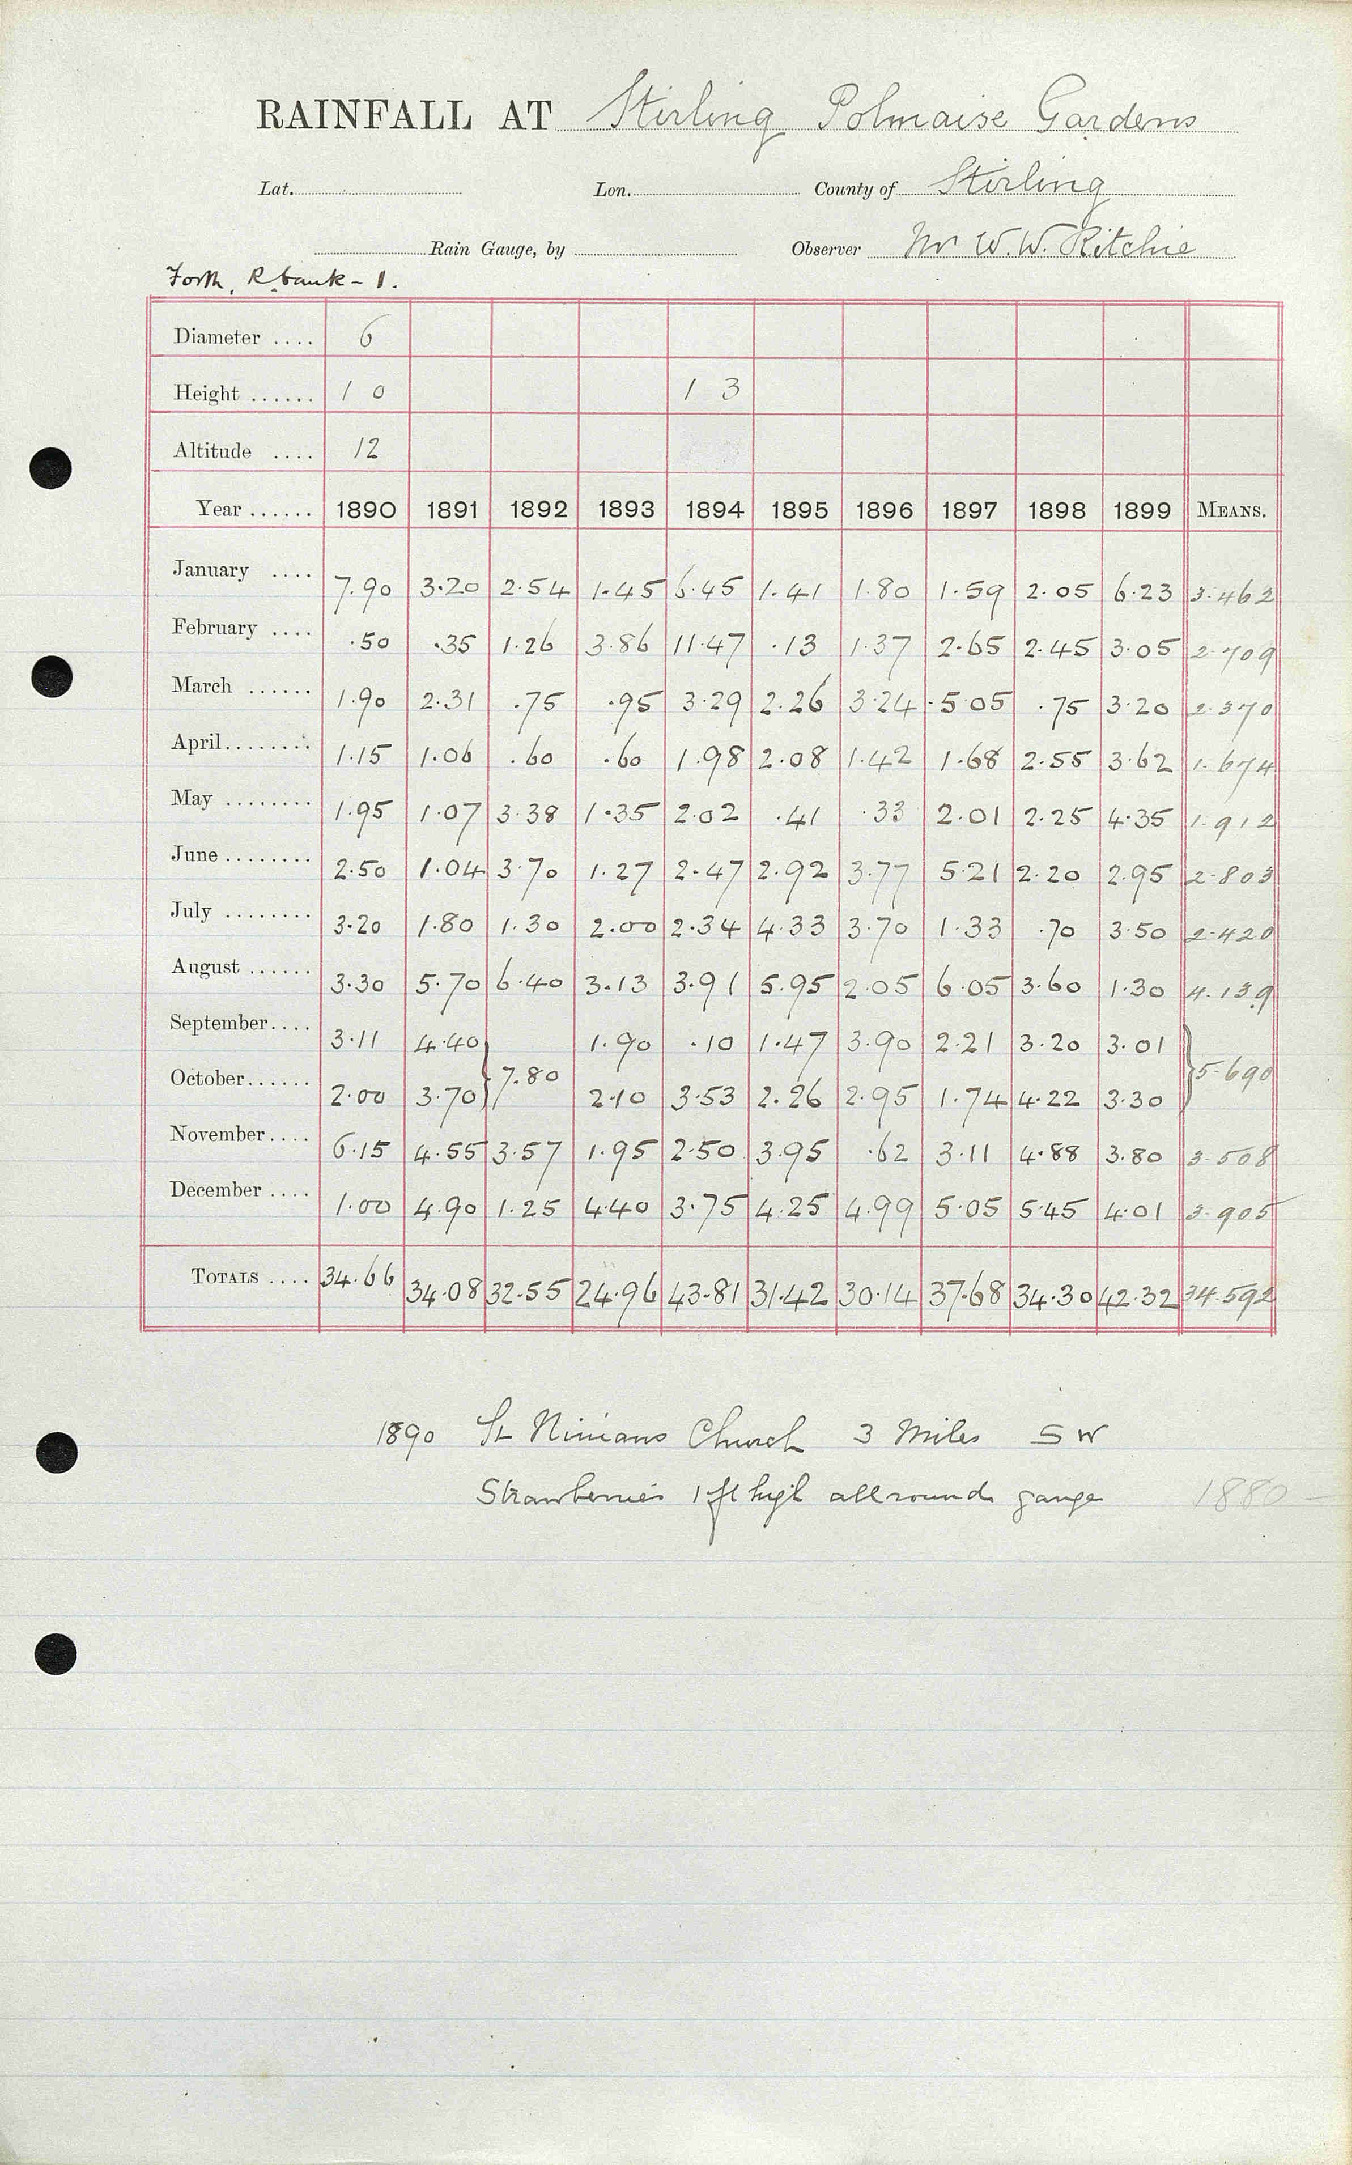 RAINFALL AT Stirling Polmaise Gardens
Lat. Lon. County of Stirling
Rain Gauge, by Observer Mr W. W. Ritchie
Forth, R. bank - 1.
Diameter .... 6
Height ...... 1 0 1 3
Altitude .... 12
Year ...... 1890 1891 1892 1893 1894 1895 1896 1897 1898 1899 MEANS.
January .... 7.90 3.20 2.54 1.45 6.45 1.41 1.80 1.59 2.05 6.23 3.462
February .... .50 .35 1.26 3.86 11.47 .13 1.37 2.65 2.45 3.05 2.709
March ...... 1.90 2.31 .75 .95 3.29 2.26 3.24 5.05 .75 3.20 2.370
April........ 1.15 1.06 .60 .60 1.98 2.08 1.42 1.68 2.55 3.62 1.674
May ........ 1.95 1.07 3.38 1.35 2.02 .41 .33 2.01 2.25 4.35 1.912
June ........ 2.50 1.04 3.70 1.27 2.47 2.92 3.77 5.21 2.20 2.95 2.803
July ........ 3.20 1.80 1.30 2.00 2.34 4.33 3.70 1.33 .70 3.50 2.420
August ...... 3.30 5.70 6.40 3.13 3.91 5.95 2.05 6.05 3.60 1.30 4.139
September.... 3.11 4.40 1.90 .10 1.47 3.90 2.21 3.20 3.01
October...... 2.00 3.70 } 7.80 2.10 3.53 2.26 2.95 1.74 4.22 3.30 } 5.690
November.... 6.15 4.55 3.57 1.95 2.50 3.95 .62 3.11 4.88 3.80 3.508
December .... 1.00 4.90 1.25 4.40 3.75 4.25 4.99 5.05 5.45 4.01 3.905
TOTALS .... 34.66 34.08 32.55 24.96 43.81 31.42 30.14 37.68 34.30 42.32 34.592
1890 St Ninians Church 3 Miles SW
Strawberries 1 ft high all round gauge 1880 -